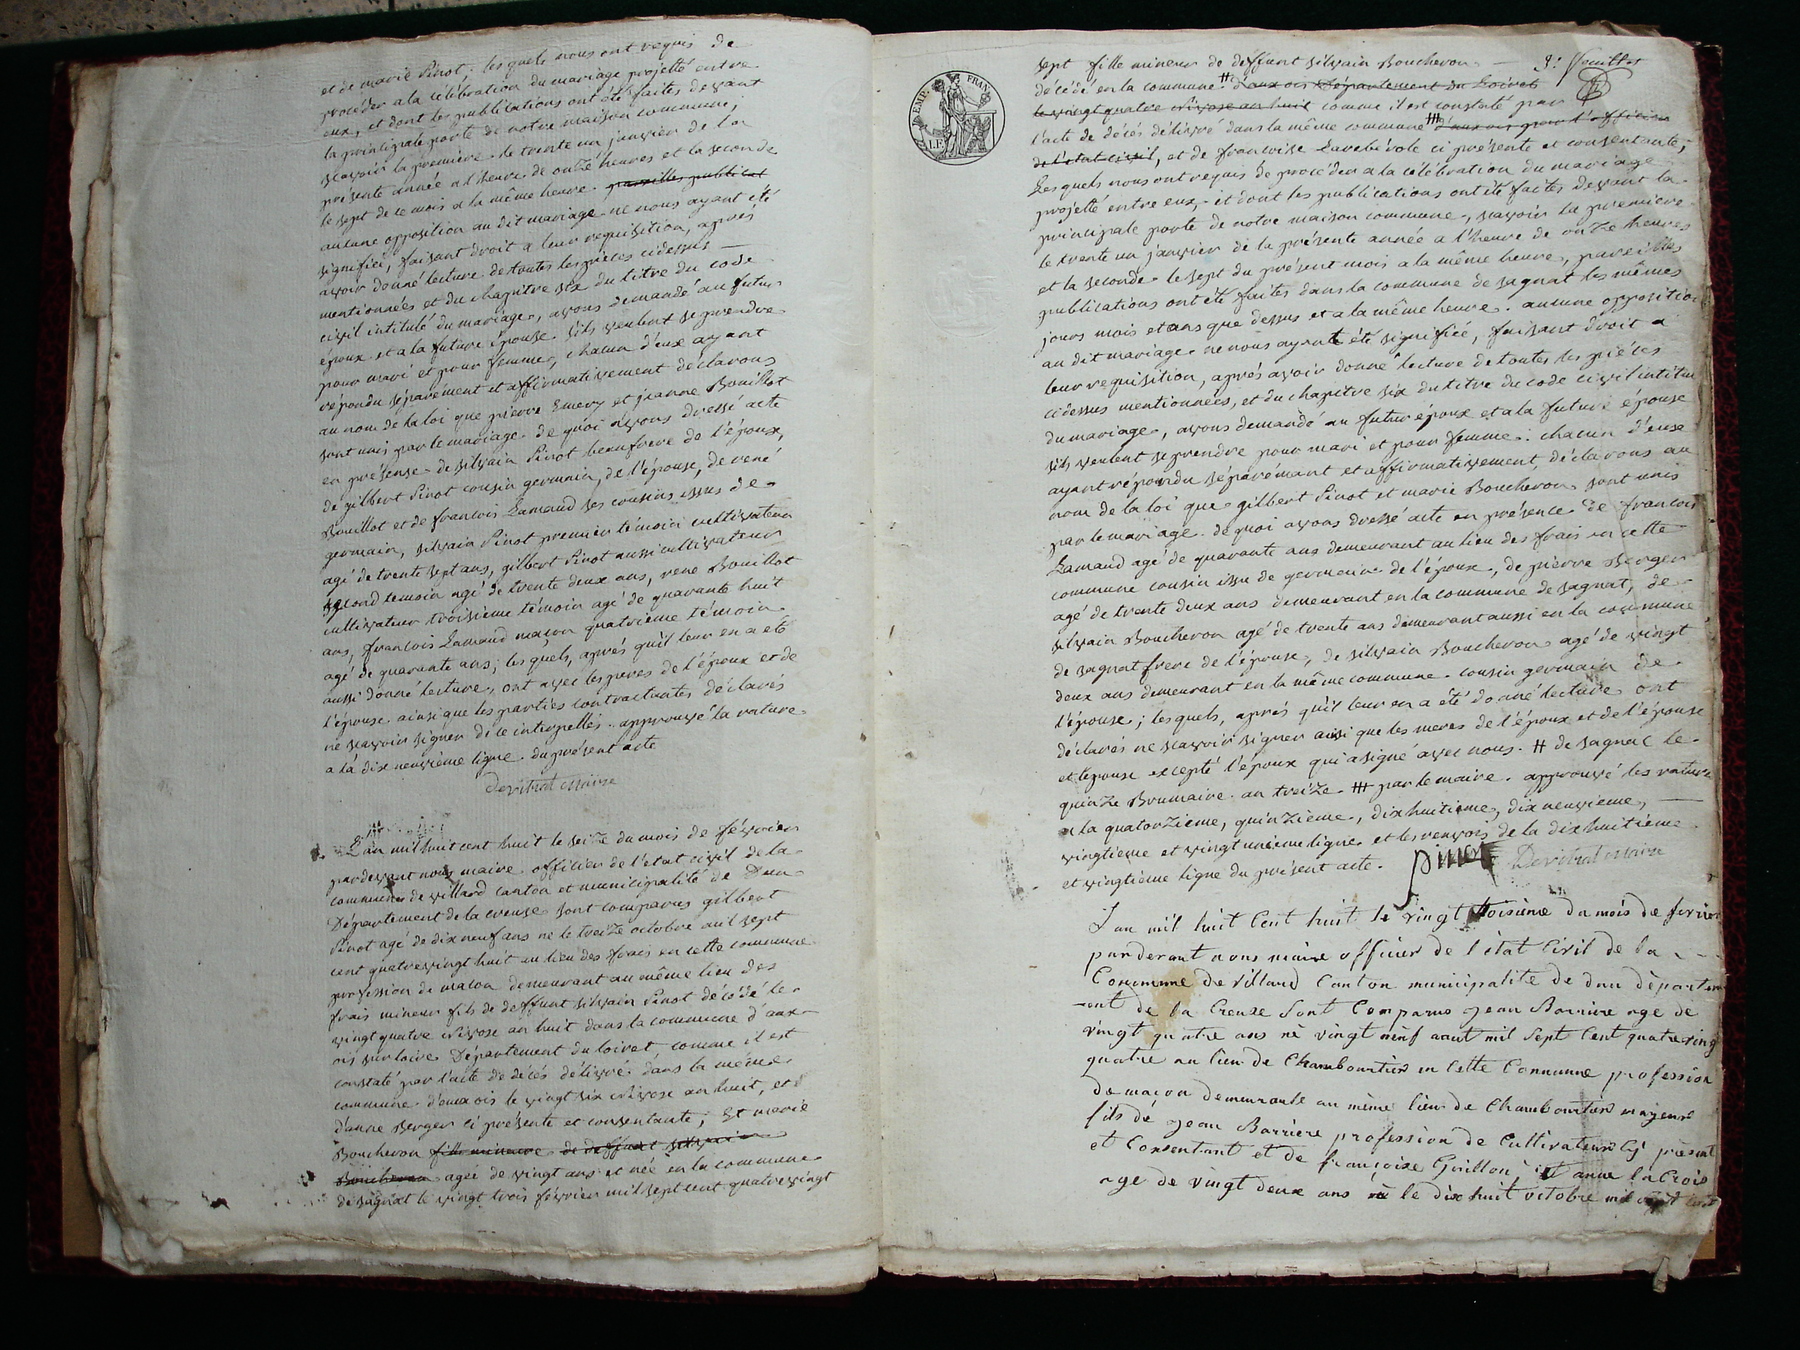 et de marie Pinot; les quels nous ont requis de
procéder a la célébration du mariage projetté entre
eux, et dont les publications ont été faites devant
la principale porte de notre maison commune;
sçavoir la première le trente un janvier de la
présente année a l'heure de onze heures et la seconde
le sept de ce mois a la même heure pareilles publicat
aucune opposition au dit mariage ne nous ayant été
signifiée, faisant droit a leur requisition, après
avoir donné lecture de toutes les pieces cidessus
mentionnées et du chapitre six du titre du code
civil intitulé du mariage, avons demandé au futur
époux et a la future épouse s'ils veulent se prendre
pour mari et pour femme, chacun d'eux ayant
répondu séparément et affirmativement déclarons
au nom de la loi que pierre Emery et jeanne Bouillot
sont unis par le mariage de quoi avons dressé acte
en présense de silvain Pinot beaufrere de l'époux,
de gilbert Pinot cousin germain, de l'épouse, de rené
Bouillot et de francois Lamaud ses cousins issus de
germain, silvain Pinot premier témoin cultivateur
agé de trente sept ans, gilbert Pinot aussi cultivateur
second temoin agé de trente deux ans, rené Bouillot
cultivateur troisième témoin agé de quarante huit
ans, francois Lamaud maçon quatrieme témoin
agé de quarante ans; les quels, après qu'il leur en a été
aussi donné lecture, ont avec les peres de l'époux et de
l'épouse ainsi que les parties contractantes déclarés
ne sçavoir signer de ce interpellés. approuvé la rature
a la dix neuvième ligne du présent acte
Devitrat maire
L'an mil huit cent huit le seize du mois de février
pardevant nous maire officier de l'état civil de la
commune de villard canton et municipalité de Dun
Département de la creuse sont comparus gilbert
Pinot agé de dix neuf ans né le treize octobre mil sept
cent quatre vingt huit au lieu des frais en cette commune
profession de maçon demeurant au même lieu des
frais mineur fils de deffunt silvain Pinot décédé le
vingt quatre nivose an huit dans la commune d'aux
ois sur loire Département du loiret, comme il est
constaté par l'acte de décès délivré dans la même
commune d'aux ois le vingt six nivose an huit, et
d'anne Berger ci présente et consentante; Et marie
Boucheron fille mineure de deffunt silvain
Boucheron agée de vingt ans et née en la commune
de sagnat le vingt trois février mil sept cent quatre vingt
EMP. FRAN.
LE
3e feuillet
sept fille mineur de deffunt silvain Boucheron
décédé en la commune # d'aux ois Département du Loiret
le vingt quatre nivose an huit comme il est constaté par
l'acte de décès délivré dans la même commune ## d'aux ois par l'officier
de l'état civil, et de francoise Lavebevote ci présente et consentante;
Les quels nous ont requis de procéder a la célébration du mariage
projetté entre eux, et dont les publications ont été faites devant la
principale porte de notre maison commune, sçavoir la premiere
le trente un janvier de la présente année a l'heure de onze heures
et la seconde le sept du présent mois a la même heure, pareilles
publications ont été faites dans la commune de sagnat les mêmes
jours mois et ans que dessus et a la même heure. aucune opposition
au dit mariage ne nous ayant été signifiée, faisant droit a
leur requisition, après avoir donné lecture de toutes les piéces
cidessus mentionnées, et du chapitre six du titre du code civil intitulé
du mariage, avons demandé au futur époux et a la future épouse
s'ils veulent se prendre pour mari et pour femme: chacun d'eux
ayant répondu séparémant et affirmativement, déclarons au
nom de la loi que gilbert Pinot et marie Boucheron sont unis
par le mariage. de quoi avons dressé acte en présence de francois
Lamaud agé de quarante ans demeurant au lieu des frais en cette
commune cousin issu de germain de l'époux, de pierre Berger
agé de trente deux ans demeurant en la commune de sagnat, de
silvain Boucheron agé de trente ans demeurant aussi en la commune
de sagnat frere de l'épouse, de silvain Boucheron agé de vingt
deux ans demeurant en la même commune cousin germain de
l'épouse; les quels, après qu'il leur en a été donné lecture ont
déclarés ne sçavoir signer ainsi que les meres de l'époux et de l'épouse
et l'épouse excepté l'époux qui a signé avec nous. # de sagnat le
quinze Brumaire an treize ## par le maire. approuvé les ratures
a la quatorzieme, quinzième, dix huitieme, dix neuvieme,
vingtieme et vingt unieme lignes et les renvois de la dix huitième
et vingtième ligne du présent acte. pinot Devitrat maire
L an mil huit Cent huit le vingt troisième du mois de fevrier
pardevant nous maire officier de l'état Civil de la
Commune de villard Canton municipalité de dun départem
-ent de la Creuse Sont Comparus Jean Barriere age de
vingt quatre ans né vingt neuf aout mil Sept Cent quatre vingt
quatre au lieu de Chamboutier en Cette Commune profession
de maçon demeurant au même lieu de Chamboutier majeur
fils de Jean Barriere profession de Cultivateur Cy présent
et Consentant et de françoise Guillon et anne laCroix
age de vingt deux ans né le dix huit octobre mil sept Cent